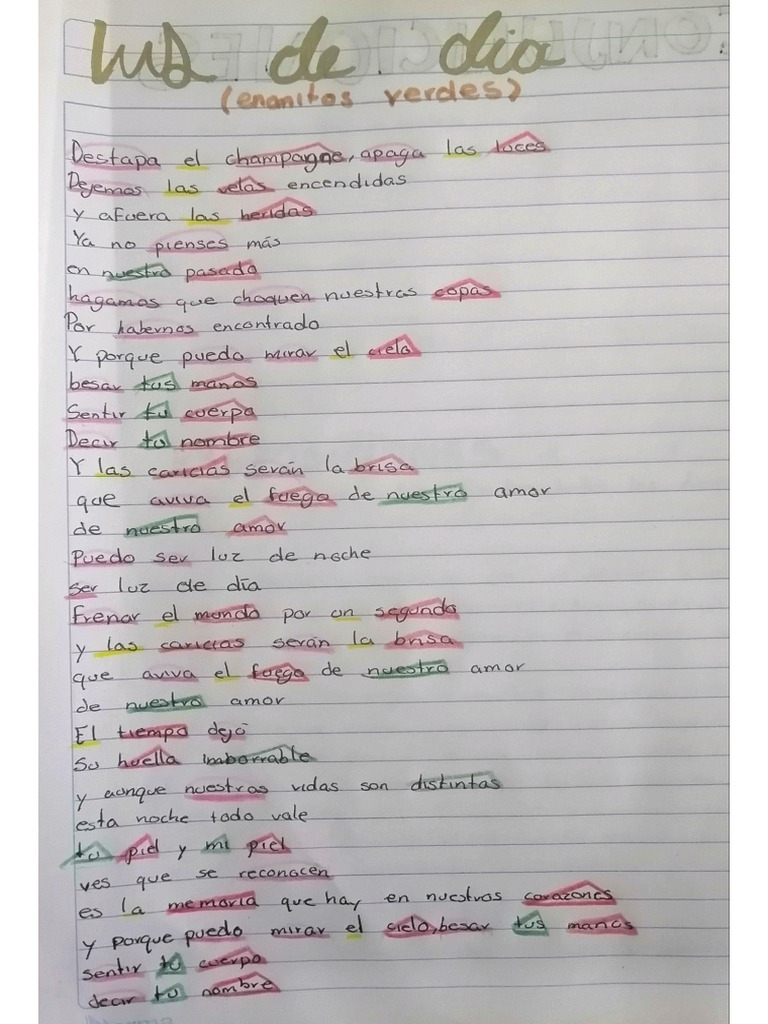 luz de dia
(enanitos verdes)
Destapa el champagne, apaga las luces
Dejemos las velas encendidas
y afuera las heridas
Ya no pienses más
en nuestro pasado
hagamos que choquen nuestras copas
Por habernos encontrado
Y porque puedo mirar el cielo
besar tus manos
Sentir tu cuerpo
Decir tu nombre
Y las caricias serán la brisa
que aviva el fuego de nuestro amor
de nuestro amor
Puedo ser luz de noche
ser luz de día
Frenar el mundo por un segundo
y las caricias serán la brisa
que aviva el fuego de nuestro amor
de nuestro amor
El tiempo dejó
Su huella imborrable
y aunque nuestras vidas son distintas
esta noche todo vale
tu piel y mi piel
ves que se reconocen
es la memoria que hay en nuestros corazones
y porque puedo mirar el cielo, besar tus manos
sentir tu cuerpo
decir tu nombre